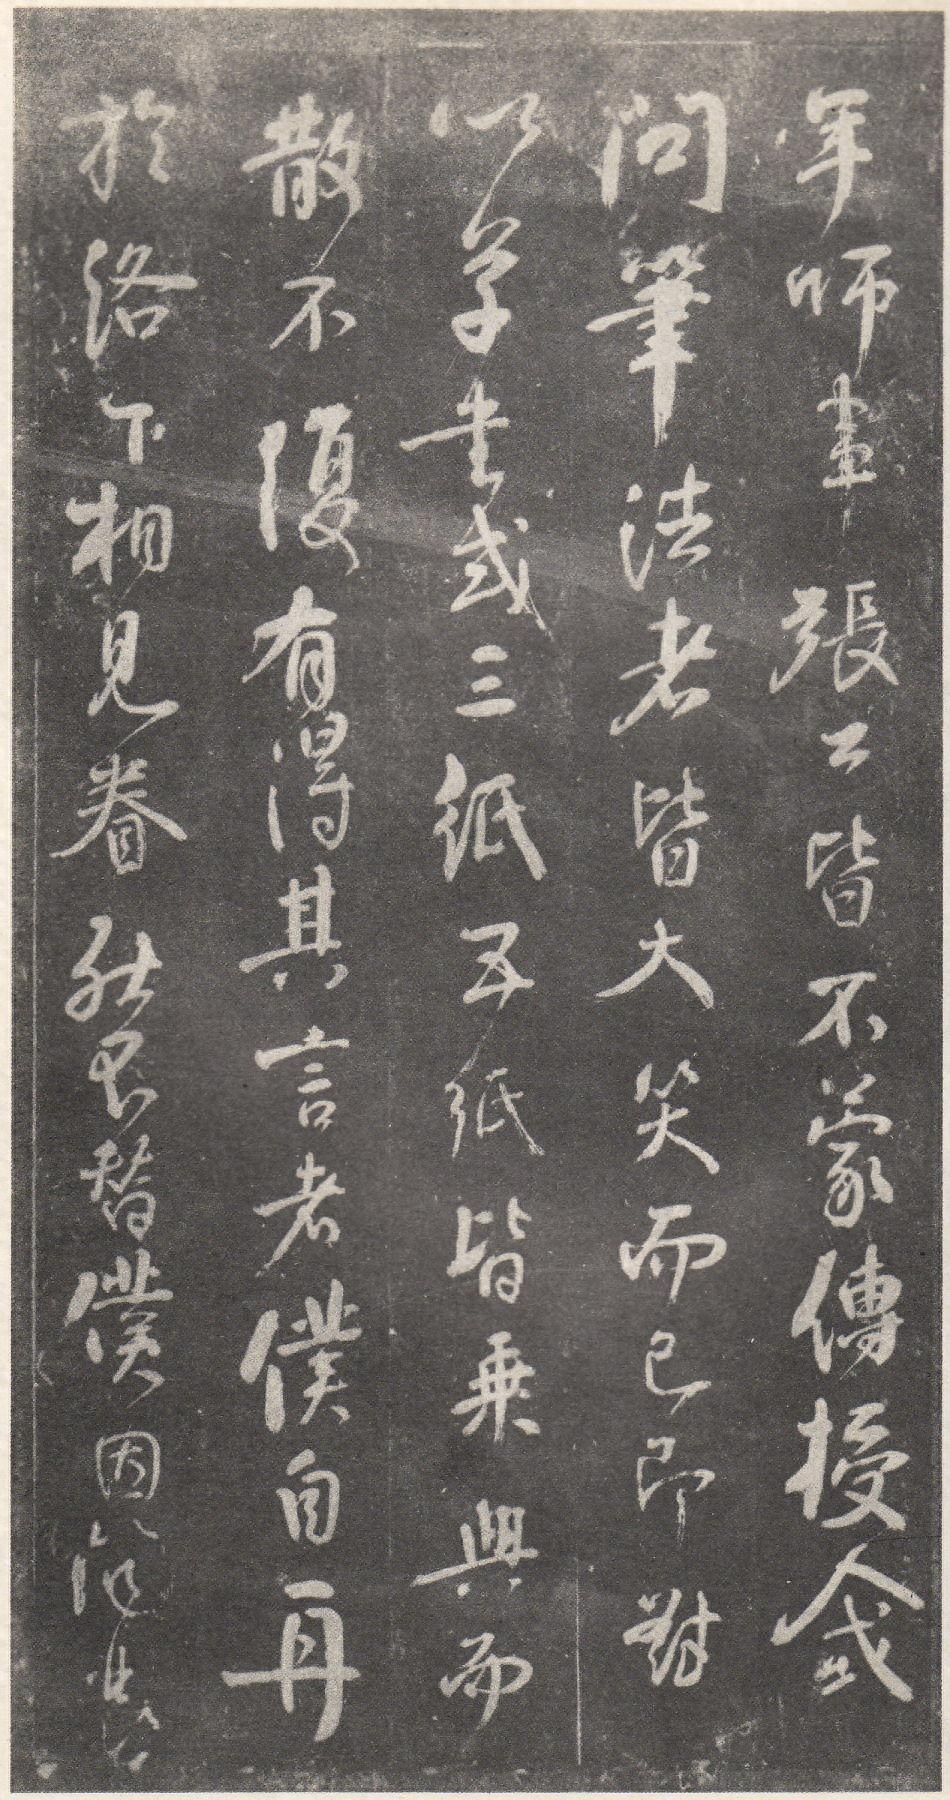 年師畫張公皆不蒙傳授人或
問筆法者皆大笑而已即對
以草書或三紙五紙皆乘興而
散不復有得其言者僕自再
於洛下相見眷然不替僕因